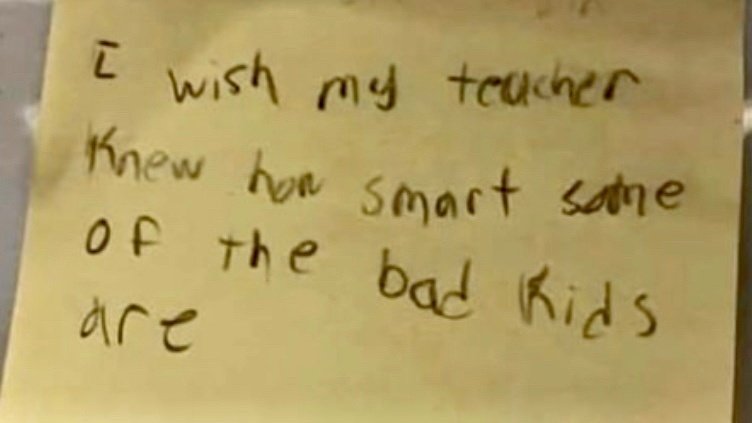 I wish my teacher
Knew how smart some
Of the bad kids
are